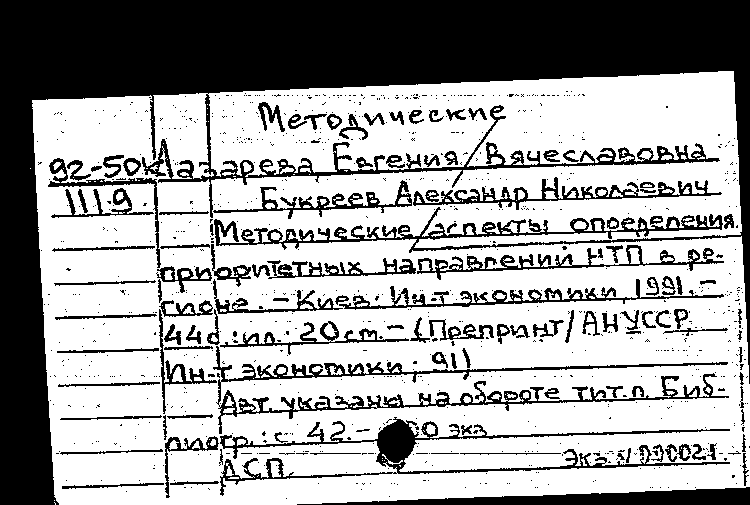 Методические
92-50к Лазарева, Евгения Вячеславовна
111.9 Букреев, Александр Николаевич
Методические аспекты определения
приоритетных направлений НТП в ре-
гионе. - Киев: Ин-т экономики, 1991. -
44с.: ил.; 20 см. - (Препринт/АНУССР,
Ин-т экономики; 91)
Авт. указаны на обороте тит.л. Биб-
лиогр.: с. 42. - 00 экз.
ДСП. Экз. N 000021.